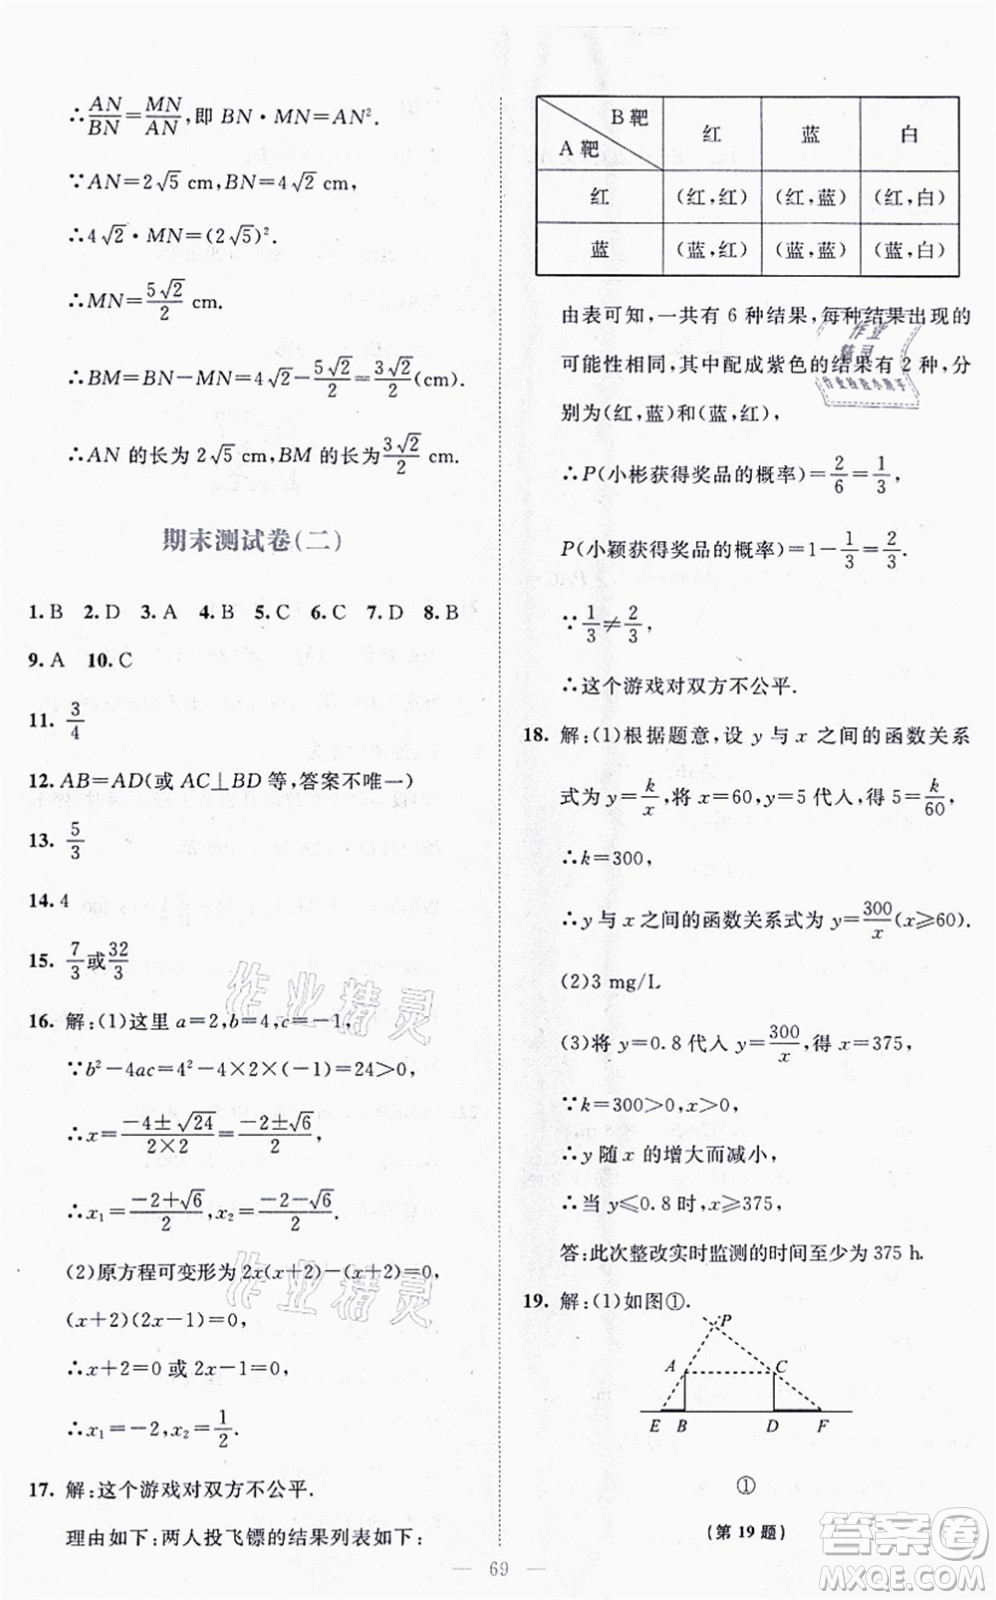 ∴AN/BN=MN/AN,即 BN·MN=AN².
∵AN=2√5 cm,BN=4√2 cm,
∴4√2·MN=(2√5)².
∴MN=5√2/2 cm.
∴BM=BN−MN=4√2−5√2/2=3√2/2(cm).
∴AN 的长为 2√5 cm,BM 的长为3√2/2 cm.
期末测试卷(二)
1. B 2. D 3. A 4. B 5. C 6. C 7. D 8. B
9. A 10. C
11. 3/4
12. AB=AD(或 AC⊥BD 等,答案不唯一)
13. 5/3
14. 4
15. 7/3或32/3
16. 解:(1)这里 a=2,b=4,c=−1,
∵b²−4ac=4²−4×2×(−1)=24>0,
∴x=(−4±√24)/(2×2)=(−2±√6)/2,
∴x₁=(−2+√6)/2,x₂=(−2−√6)/2.
(2)原方程可变形为 2x(x+2)−(x+2)=0,
(x+2)(2x−1)=0,
∴x+2=0 或 2x−1=0,
∴x₁=−2,x₂=1/2.
17. 解:这个游戏对双方不公平.
理由如下:两人投飞镖的结果列表如下:
B 靶 A 靶 红 蓝 白
红 (红,红) (红,蓝) (红,白)
蓝 (蓝,红) (蓝,蓝) (蓝,白)
由表可知,一共有 6 种结果,每种结果出现的
可能性相同,其中配成紫色的结果有 2 种,分
别为(红,蓝)和(蓝,红),
∴P(小彬获得奖品的概率)=2/6=1/3,
P(小颖获得奖品的概率)=1−1/3=2/3.
∵1/3≠2/3,
∴这个游戏对双方不公平.
18. 解:(1)根据题意,设 y 与 x 之间的函数关系
式为 y=k/x,将 x=60,y=5 代人,得 5=k/60,
∴k=300,
∴y 与 x 之间的函数关系式为 y=300/x(x≥60).
(2)3 mg/L
(3)将 y=0.8 代人 y=300/x,得 x=375,
∵k=300>0,x>0,
∴y 随 x 的增大而减小,
∴当 y≤0.8 时,x≥375,
答:此次整改实时监测的时间至少为 375 h.
19. 解:(1)如图①.
P
A C
E B D F
①
(第 19 题)
— 69 —
作业精灵
作业精灵
作业
精灵
作业检查小帮手
答案卷
MXQE.COM